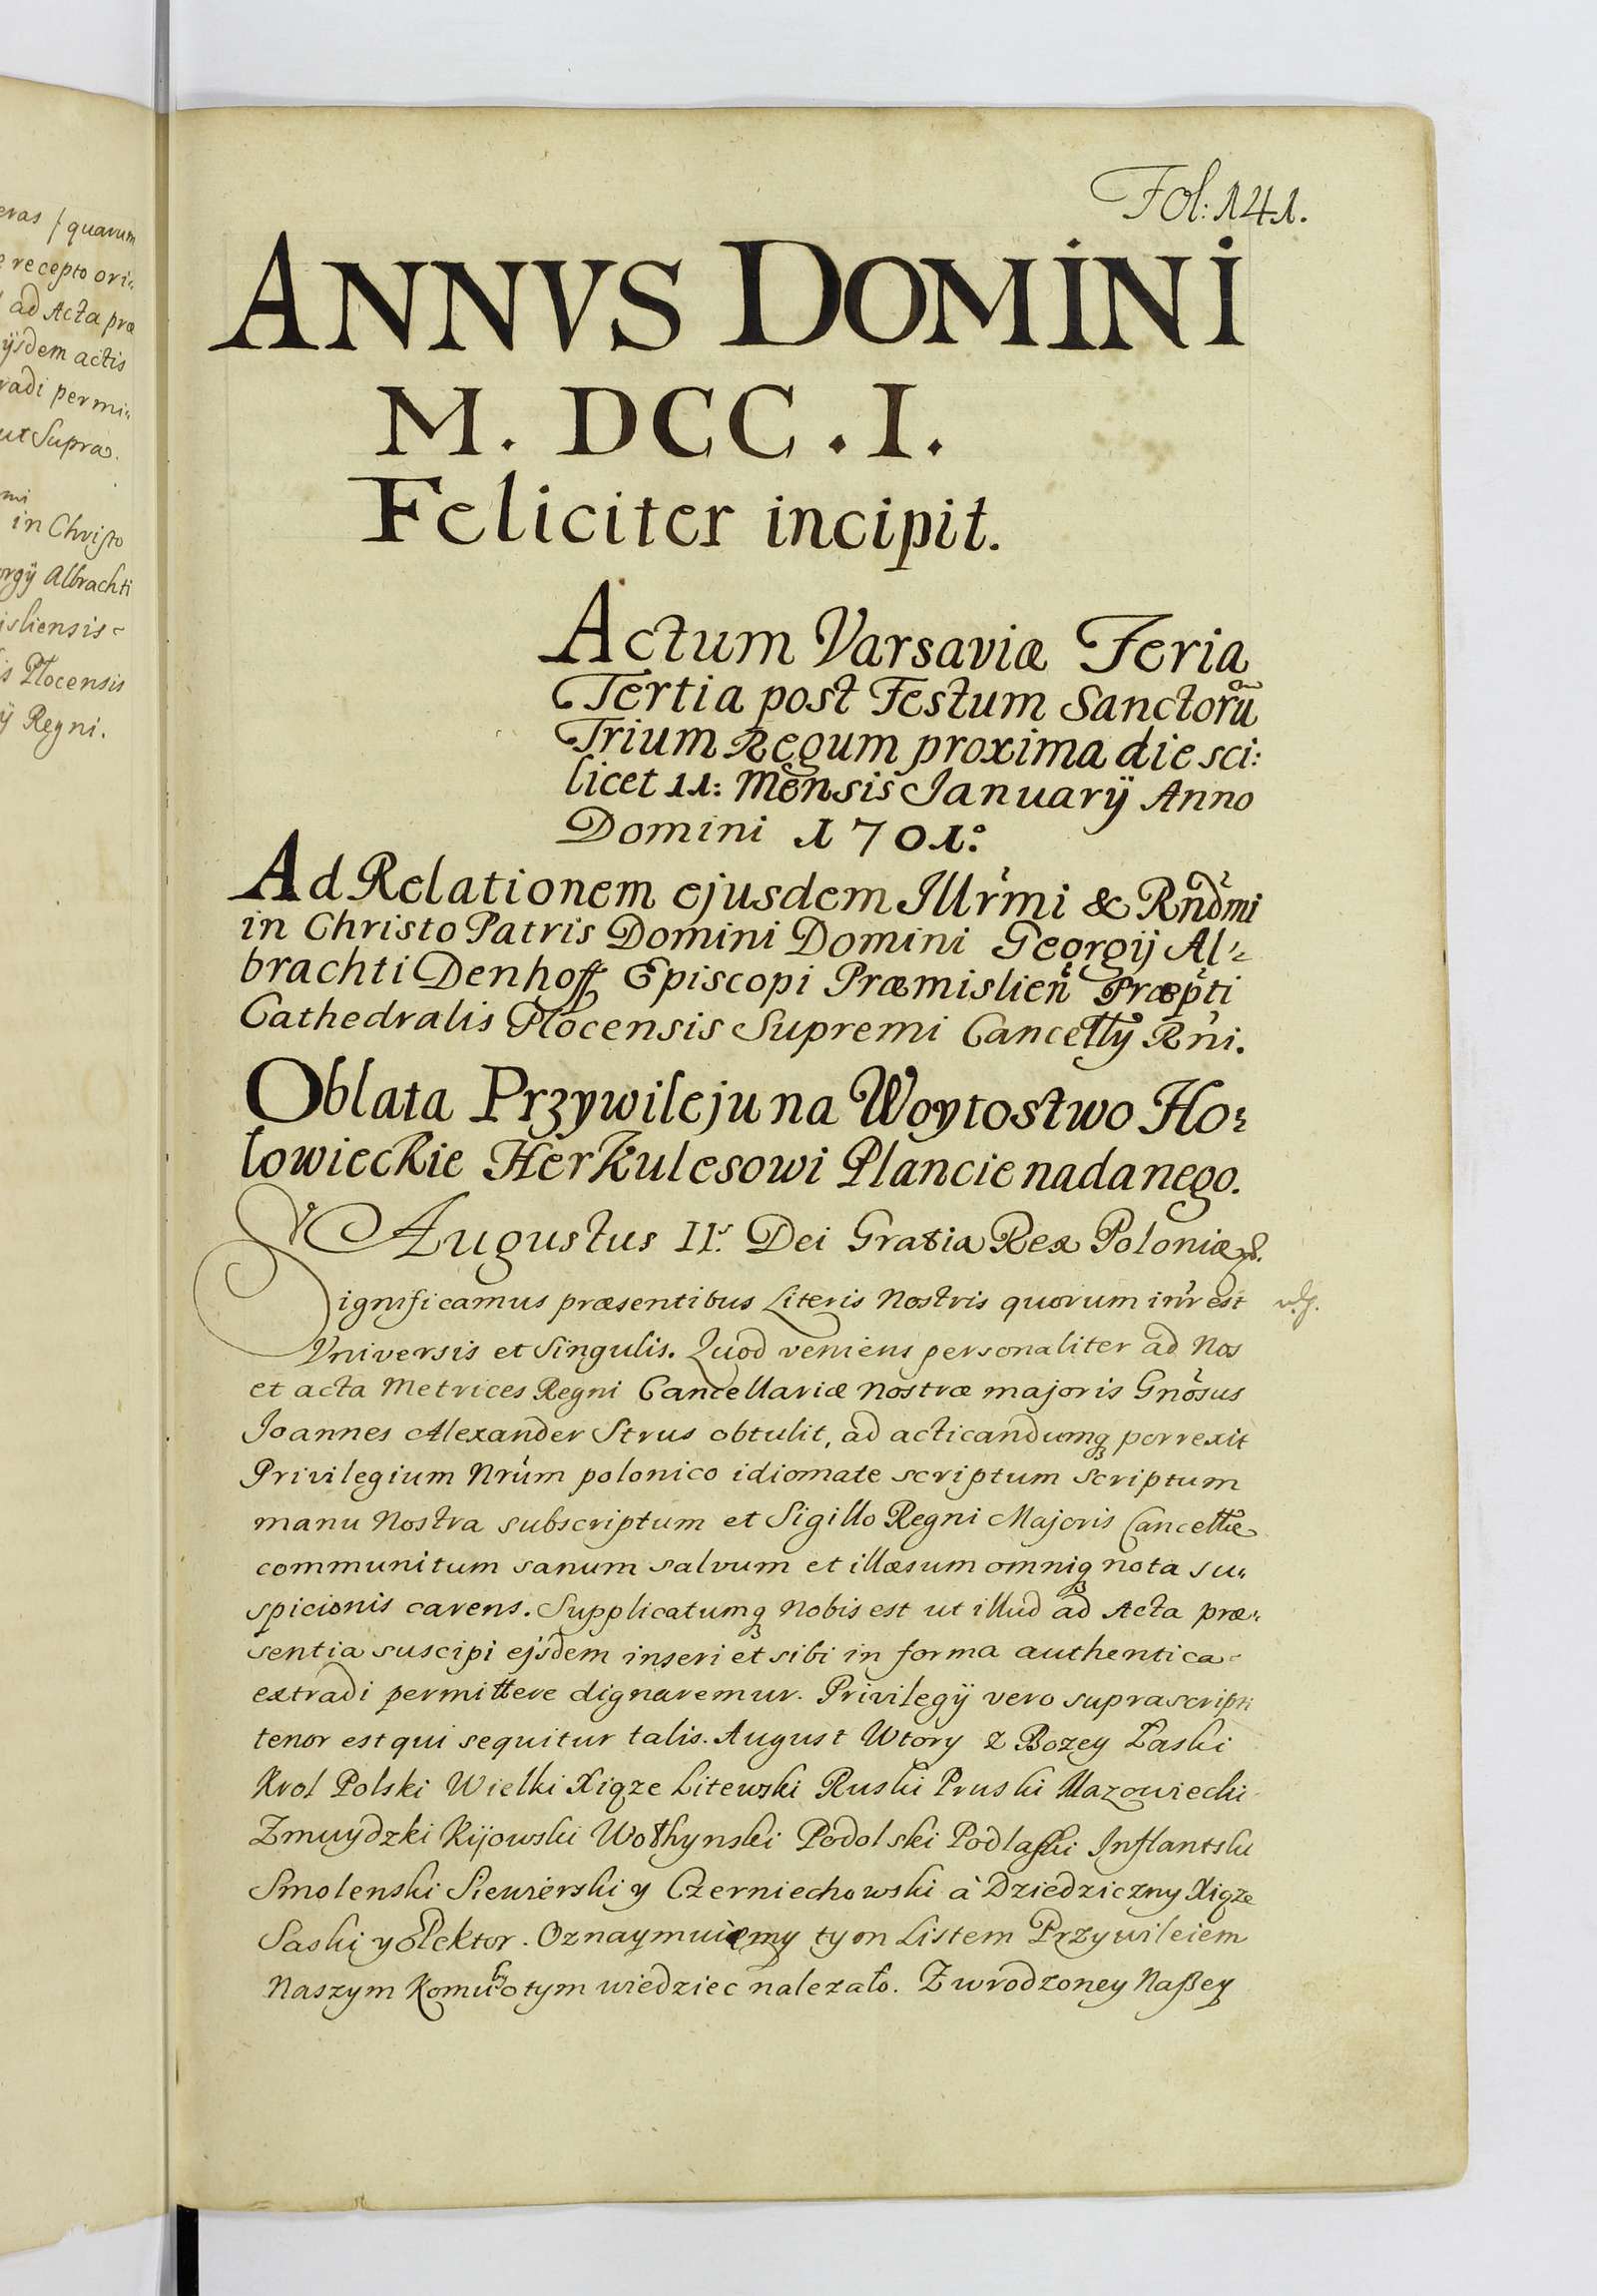 eras / quarum
recepto ori„
ad Acta præ
ijsdem actis
radi permi„
ut Supra.
mi
in Christo
orgÿ Albrachti
isliensis
is Plocensis
ÿ Regni.
Fol: 141.
ANNVS DOMINI
M. DCC. I.
Feliciter incipit.
Actum Varsaviæ Feria
Tertia post Festum Sanctorũ
Trium Regum proxima die sci:
licet 11: Mensis Januarÿ Anno
Domini 1701.
Ad Relationem ejusdem Illrmi & Rndmi
in Christo Patris Domini Domini Georgij Al„
brachti Denhoff Episcopi Præmislien Præpti
Cathedralis Plocensis Supremi Cancellÿ Rni.
Oblata Przywileju na Woytostwo Ho„
lowieckie Herkulesowi Plancie nadanego.
Augustus II. Dei Gratia Rex Poloniæ &.
Significamus præsentibus Literis Nostris quorum inr est
Vniversis et Singulis. Quod veniens personaliter ad Nos
et acta Metrices Regni Cancellariæ Nostræ majoris Gnosus
Joannes Alexander Strus obtulit, ad acticandumq porrexit
Privilegium Nrum polonico idiomate scriptum scriptum
manu Nostra subscriptum et Sigillo Regni Majoris Cancellæ
communitum sanum salvum et illæsum omniq nota su„
spicionis carens. Supplicatumq Nobis est ut illud ad Acta præ„
sentia suscipi ejsdem inseri et sibi in forma authentica
extradi permittere dignaremur. Privilegÿ vero suprascripti
tenor est qui sequitur talis. August Wtory z Bozey Łaski
Krol Polski Wielki Xiąze Litewski Ruski Pruski Mazowiecki
Zmuydzki Kijowski Wołhynski Podolski Podlaski Inflantski
Smolenski Siewierski y Czerniechowski à Dziedziczny Xiąze
Saski y Elektor. Oznaymuiemy tym Listem Przywileiem
Naszym Komu by o tym wiedziec nalezało. Z wrodzoney Naßey